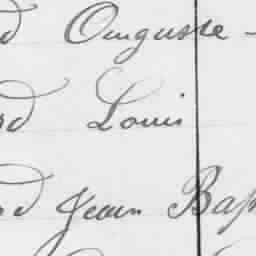 d Auguste -
rd Louis
nd Jean Bap